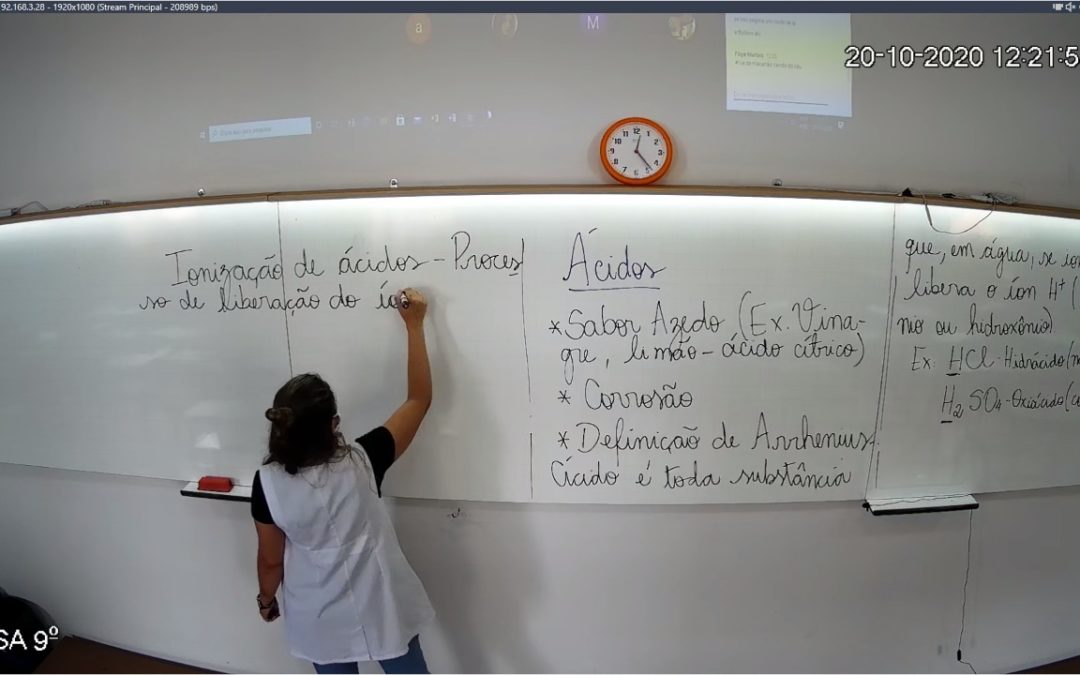 92.168.3.28 - 1920x1080 (Stream Principal - 208989 bps)
a
M
20-10-2020 12:21:5
12
1
2
3
4
5
6
7
8
9
10
11
Ionização de ácidos - Proces
so de liberação do ío
Ácidos
* Sabor Azedo (Ex. Vina-
gre, limão - ácido cítrico)
* Corrosão
* Definição de Arrhenius
Ácido é toda substância
que, em água, se ion
libera o íon H+ (
nio ou hidroxônio)
Ex: HCl - Hidrácido (
H2SO4 - Oxiácido (
SA 9º